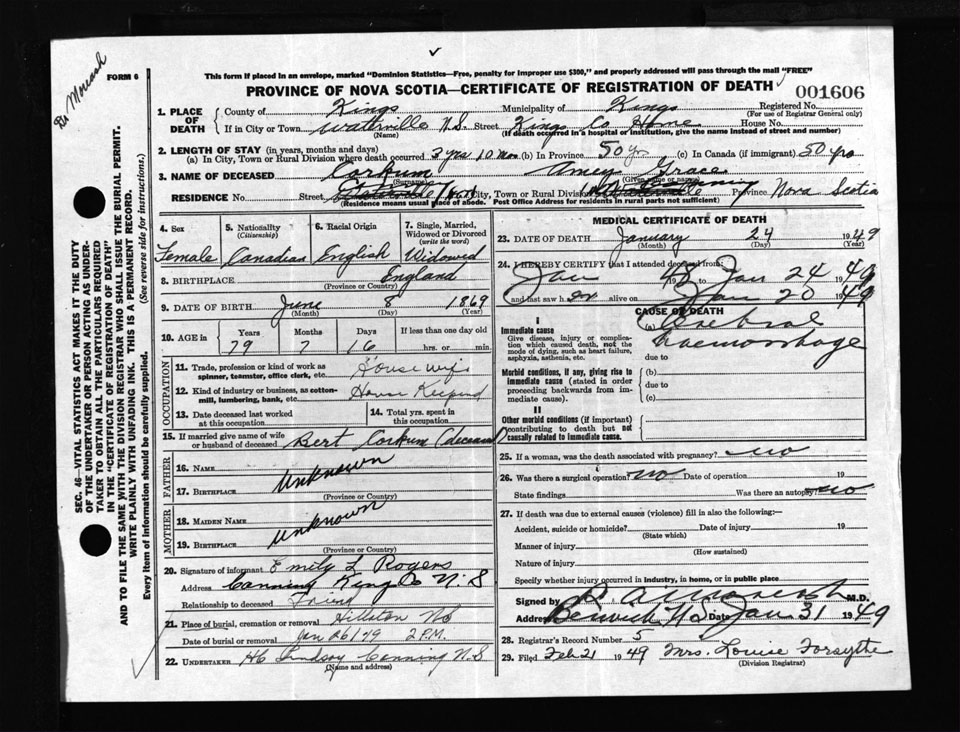 Dr Moreash
FORM 6
This form if placed in an envelope, marked "Dominion Statistics—Free, penalty for improper use $300," and properly addressed will pass through the mail "FREE"
PROVINCE OF NOVA SCOTIA—CERTIFICATE OF REGISTRATION OF DEATH
001606
SEC. 46—VITAL STATISTICS ACT MAKES IT THE DUTY
OF THE UNDERTAKER OR PERSON ACTING AS UNDER-
TAKER TO OBTAIN ALL THE PARTICULARS REQUIRED
IN THE "CERTIFICATE OF REGISTRATION OF DEATH"
AND TO FILE THE SAME WITH THE DIVISION REGISTRAR WHO SHALL ISSUE THE BURIAL PERMIT.
WRITE PLAINLY WITH UNFADING INK. THIS IS A PERMANENT RECORD.
Every item of Information should be carefully supplied. (See reverse side for instructions.)
1. PLACE OF DEATH County of Kings Municipality of Kings Registered No.
(For use of Registrar General only)
If in City or Town Waterville N.S. Street Kings Co Home House No.
(Name) (If death occurred in a hospital or institution, give the name instead of street and number)
2. LENGTH OF STAY (in years, months and days)
(a) In City, Town or Rural Division where death occurred 3 yrs 10 mon (b) In Province 50 yrs (c) In Canada (if immigrant) 50 yrs
3. NAME OF DECEASED Corkum Amey Grace
(Surname) (Given name or names)
RESIDENCE No. Street City, Town or Rural Division Canning Province Nova Scotia
(Residence means usual place of abode. Post Office Address for residents in rural parts not sufficient)
4. Sex 5. Nationality (Citizenship) 6. Racial Origin 7. Single, Married, Widowed or Divorced (write the word)
Female Canadian English Widowed
8. BIRTHPLACE England
(Province or Country)
9. DATE OF BIRTH June 8 1869
(Month) (Day) (Year)
10. AGE in Years Months Days If less than one day old
79 7 16 hrs. or min.
OCCUPATION
11. Trade, profession or kind of work as spinner, teamster, office clerk, etc. House wife
12. Kind of industry or business, as cotton-mill, lumbering, bank, etc. House Keeping
13. Date deceased last worked at this occupation 14. Total yrs. spent in this occupation
15. If married give name of wife or husband of deceased Bert Corkum (deceased)
FATHER
16. NAME
17. BIRTHPLACE unknown
(Province or Country)
MOTHER
18. MAIDEN NAME
19. BIRTHPLACE unknown
(Province or Country)
20. Signature of informant Emily L Rogers
Address Canning Kings Co N.S
Relationship to deceased Friend
21. Place of burial, cremation or removal Hillaton NS
Date of burial or removal Jan 26/49 2 P.M.
22. UNDERTAKER HC Lindsay Canning N.S
(Name and address)
MEDICAL CERTIFICATE OF DEATH
23. DATE OF DEATH January 24 1949
(Month) (Day) (Year)
24. I HEREBY CERTIFY that I attended deceased from:
Jan 48 to Jan 24 1949
and last saw her alive on Jan 20 1949
CAUSE OF DEATH
I
Immediate cause (a) Cerebral
Give disease, injury or complication which caused death, not the mode of dying, such as heart failure, asphyxia, asthenia, etc. haemorrhage
due to
Morbid conditions, if any, giving rise to immediate cause (stated in order proceeding backwards from immediate cause). (b)
due to
(c)
II
Other morbid conditions (if important) contributing to death but not causally related to immediate cause.
25. If a woman, was the death associated with pregnancy? no
26. Was there a surgical operation? no Date of operation 19
State findings Was there an autopsy? no
27. If death was due to external causes (violence) fill in also the following:—
Accident, suicide or homicide? Date of injury 19
(State which)
Manner of injury
(How sustained)
Nature of injury
Specify whether injury occurred in industry, in home, or in public place
Signed by M.D.
Address Berwick N.S. Date Jan 31 1949
28. Registrar's Record Number 5
29. Filed Feb 21 1949 Mrs. Louise Forsythe
(Division Registrar)